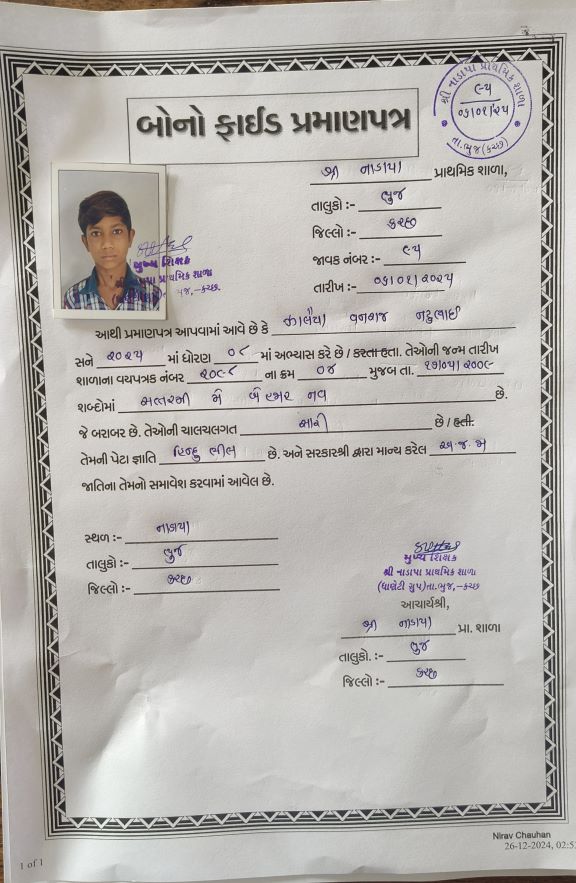 શ્રી નાડાપા પ્રાથમિક શાળા
૯૫
૦૬/૦૧/૨૫
તા.ભુજ(કચ્છ)
બોનો ફાઈડ પ્રમાણપત્ર
શ્રી નાડાપા પ્રાથમિક શાળા,
તાલુકો :- ભુજ
જિલ્લો :- કચ્છ
જાવક નંબર :- ૯૫
તારીખ :- ૦૬/૦૧/૨૦૨૫
મુખ્ય શિક્ષક
પા પ્રાથમિક શાળા
જ,-કચ્છ.
આથી પ્રમાણપત્ર આપવામાં આવે છે કે વનરાજ
સને ૨૦૨૫ માં ધોરણ ૦૮ માં અભ્યાસ કરે છે / કરતા હતા. તેઓની જન્મ તારીખ
શાળાના વયપત્રક નંબર ૨૦૯૮ ના ક્રમ ૦૪ મુજબ તા. ૧૭/૦૫/૨૦૦૯
શબ્દોમાં સત્તરમી મે બે હજાર નવ છે.
જે બરાબર છે. તેઓની ચાલચલગત સારી છે / હતી.
તેમની પેટા જ્ઞાતિ હિન્દુ ભીલ છે. અને સરકારશ્રી દ્વારા માન્ય કરેલ અ.જ.જા
જાતિના તેમનો સમાવેશ કરવામાં આવેલ છે.
સ્થળ :- નાડાપા
તાલુકો :- ભુજ
જિલ્લો :- કચ્છ
મુખ્ય શિક્ષક
શ્રી નાડાપા પ્રાથમિક શાળા
(ધાણેટી ગ્રુપ)તા.ભુજ,-કચ્છ
આચાર્યશ્રી,
શ્રી નાડાપા પ્રા. શાળા
તાલુકો. :- ભુજ
જિલ્લો :- કચ્છ
Nirav Chauhan
26-12-2024, 02:5
1 of 1